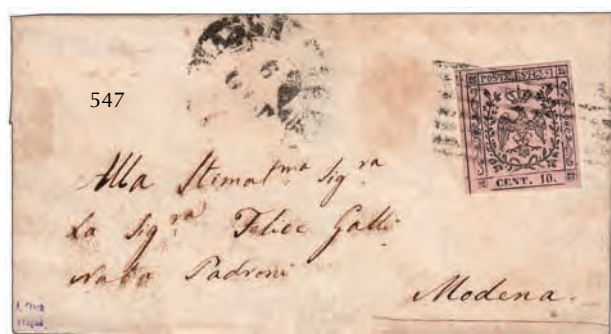 547
POSTE ESTENSI
CENT. 10.
Alla Stimat.ma Sig.ra
La Sig.ra Felice Galli
nata Padroni
Modena.